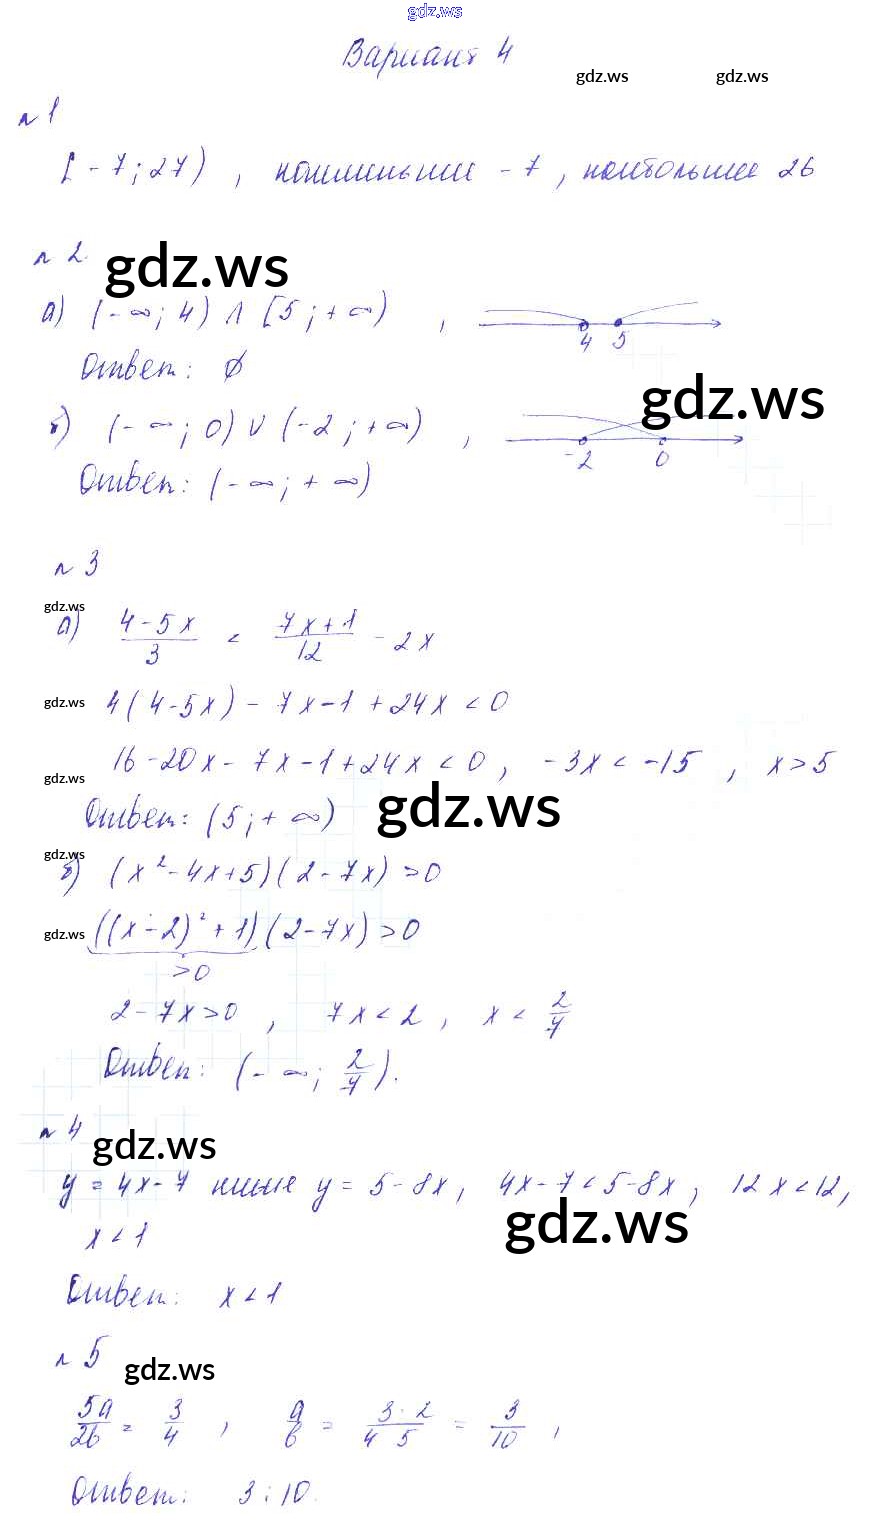 gdz.ws
Вариант 4
gdz.ws gdz.ws
n 1
[-7; 27) , наименьшее -7 , наибольшее 26
n 2
gdz.ws
а) (-∞; 4) ∧ [5; +∞) ,
4 5
Ответ: ∅
gdz.ws
б) (-∞; 0) ∨ (-2; +∞) ,
-2 0
Ответ: (-∞; +∞)
n 3
gdz.ws
а) \frac{4-5x}{3} < \frac{7x+1}{12} - 2x
gdz.ws 4(4-5x) - 7x-1 + 24x < 0
16-20x - 7x-1+24x < 0 , -3x < -15 , x > 5
gdz.ws
Ответ: (5; +∞) gdz.ws
gdz.ws
б) (x²-4x+5)(2-7x) > 0
gdz.ws ((x-2)²+1)(2-7x) > 0
>0
2-7x > 0 , 7x < 2 , x < \frac{2}{7}
Ответ: (-∞; \frac{2}{7}).
n 4 gdz.ws
y = 4x-7 ниже y = 5-8x, 4x-7 < 5-8x, 12x < 12,
gdz.ws
x < 1
Ответ: x < 1
n 5 gdz.ws
\frac{5a}{2b} = \frac{3}{4} , \frac{a}{b} = \frac{3·2}{4 5} = \frac{3}{10} ,
Ответ: 3:10.